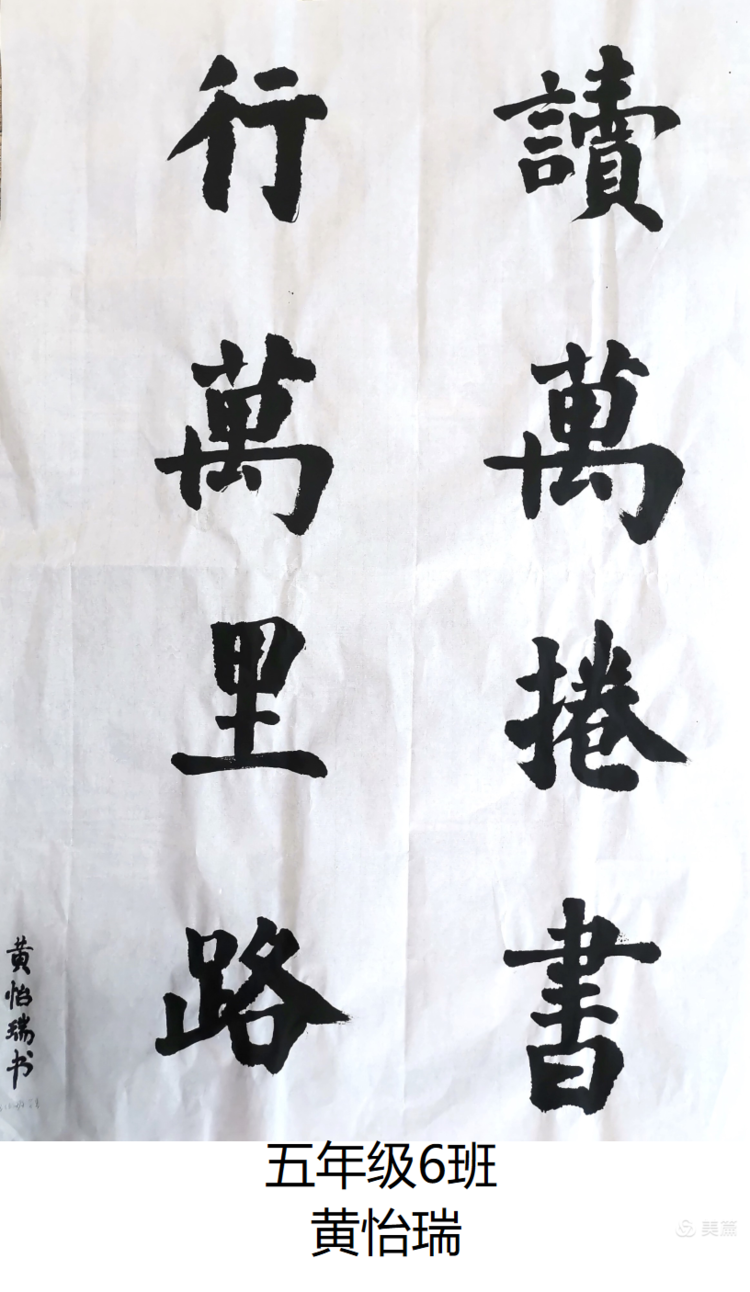 讀萬捲書
行萬里路
黄怡瑞书
五年级6班
黄怡瑞
美篇